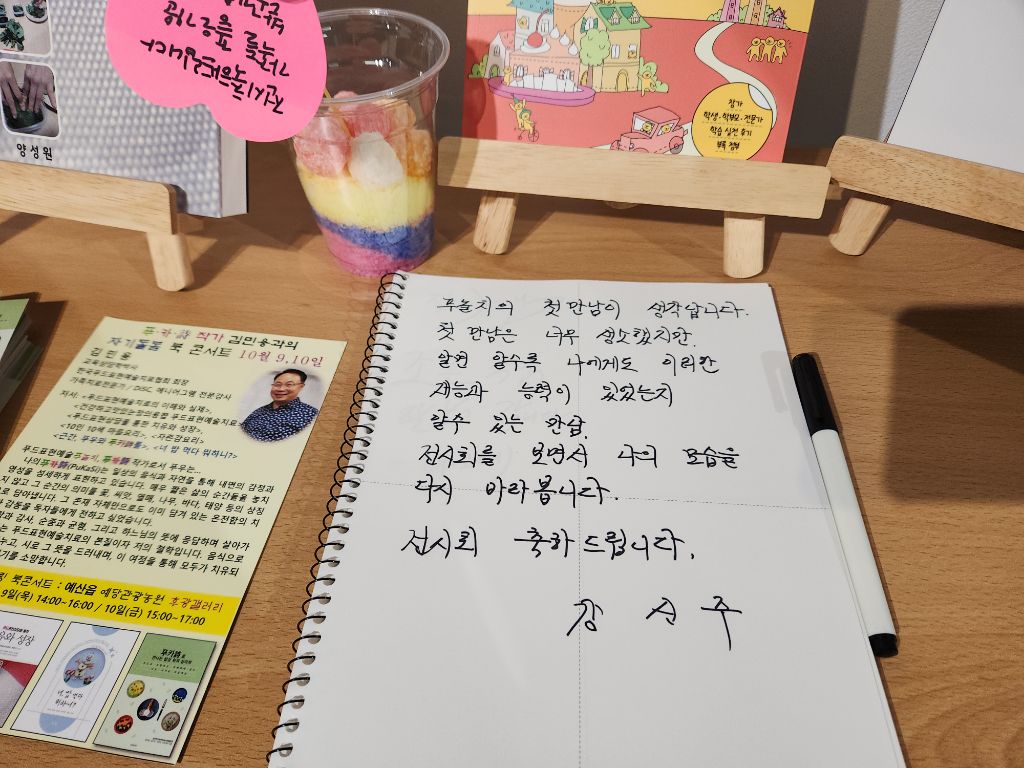 양성원
참가
학생·학부모·전문가
학습 실천 후기
부록 정보
푸카詩 작가 김민용과의
자기돌봄 북 콘서트 10월 9.10일
김 민 용
교육상담학박사
한국푸드표현예술치료협회 회장
가족치료전문가 / DISC, 에니어그램 전문강사
저서: <푸드표현예술치료의 이해와 실제>,
<푸드표현상담을 통한 치유와 성장>,
<10인 10색 마음요리>, <자존감요리>
<근간, 푸우와 푸카詩>, <너 밥 먹다 뭐하니?>
푸드표현예술 작가로서 푸우는...
나의푸카詩(PuKaSi)는 일상의 음식과 자연을 통해 내면의 감정과
영성을 섬세하게 표현하고 있습니다. 매우 짧은 삶의 순간들을 놓치
지 않고 그 순간의 의미를 꽃, 씨앗, 열매, 나무, 바다, 태양 등의 상징
로 담아냅니다. 그 존재 자체만으로도 이미 담겨 있는 온전함의 치
감동을 독자들에게 전하고 싶었습니다.
과 감사, 순종과 균형, 그리고 하느님의 뜻에 응답하며 살아가
는 푸드표현예술치료의 본질이자 저의 철학입니다. 음식으로
누고, 시로 그 뜻을 드러내며, 이 여정을 통해 모두가 치유되
기를 소망합니다.
북콘서트 : 예산읍 예당관광농원 후광갤러리
9일(목) 14:00~16:00 / 10일(금) 15:00~17:00
와 성장
너, 밥 먹다
뭐하니?
푸카詩로
푸놀치의 첫 만남이 생각납니다.
첫 만남은 너무 생소했지만.
알면 알수록 나에게도 이러한
재능과 능력이 있었는지
알수 있는 만남.
전시회를 보면서 나의 모습을
다시 바라봅니다.
전시회 축하드립니다.
강 신 주